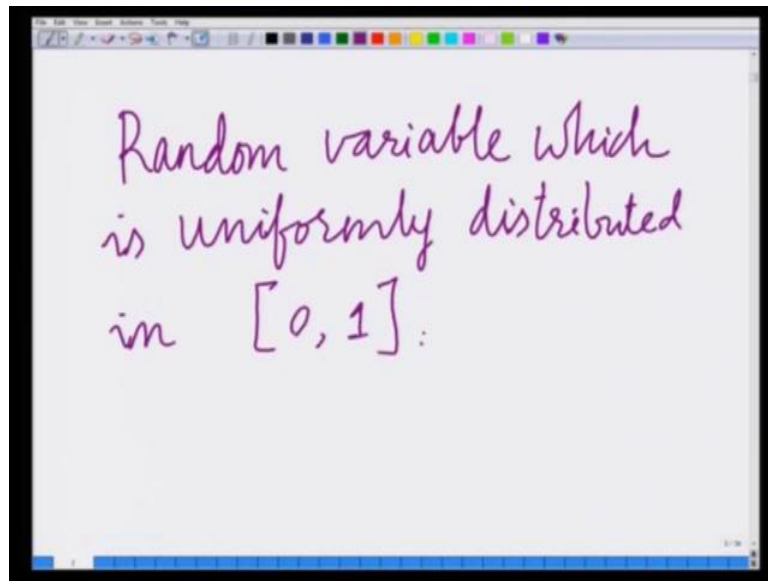 File Edit View Insert Actions Tools Help
Random variable which
is uniformly distributed
in [0, 1].